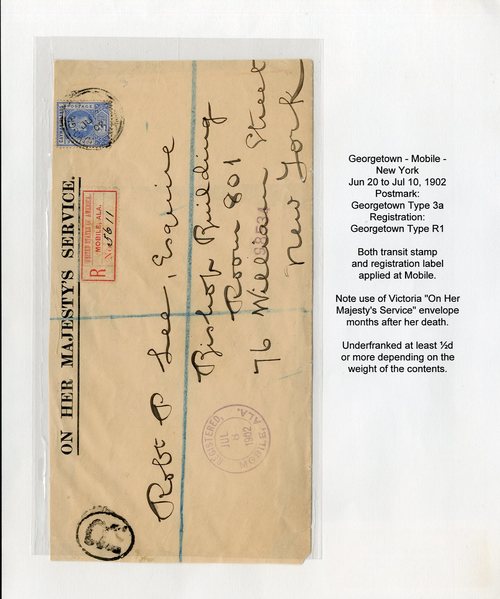 Georgetown - Mobile -
New York
Jun 20 to Jul 10, 1902
Postmark:
Georgetown Type 3a
Registration:
Georgetown Type R1
Both transit stamp
and registration label
applied at Mobile.
Note use of Victoria "On Her
Majesty's Service" envelope
months after her death.
Underfranked at least ½d
or more depending on the
weight of the contents.
ON HER MAJESTY'S SERVICE.
UNITED STATES OF AMERICA.
MOBILE, ALA.
R No.
Robt P Lee, Esquire
Bishop Building
Room 801
76 William Street
New York
REGISTERED,
JUL
8
1902
MOBILE, ALA.
R